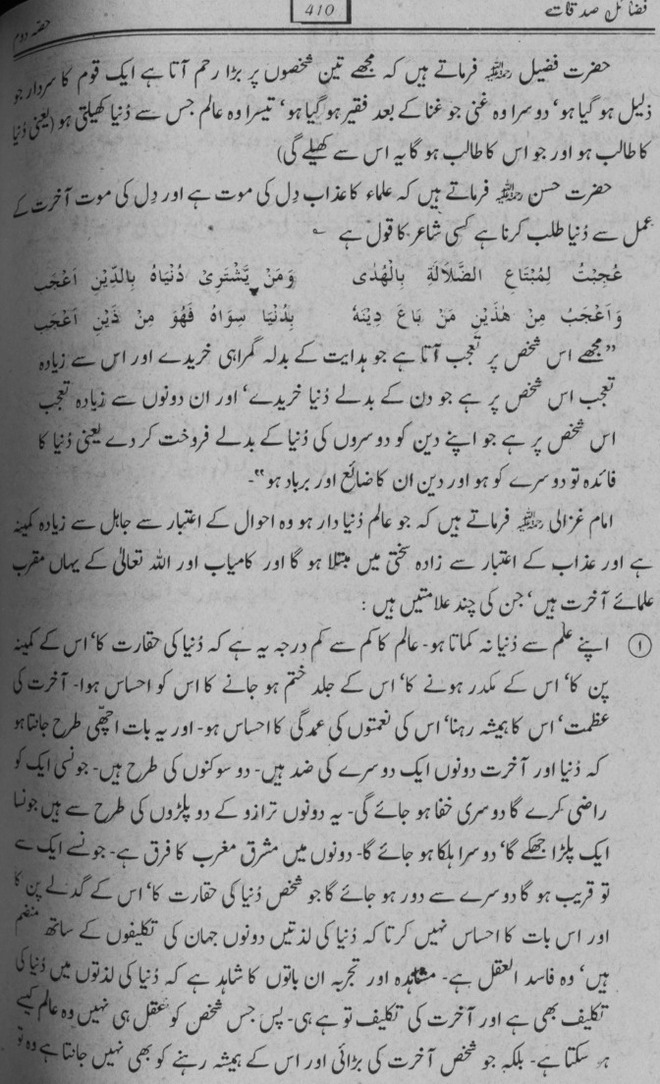 فضائل صدقات
410
حصہ دوم
حضرت فضیل رحمۃ اللہ علیہ فرماتے ہیں کہ مجھے تین شخصوں پر بڑا رحم آتا ہے ایک قوم کا سردار جو
ذلیل ہو گیا ہو، دوسرا وہ غنی جو غنا کے بعد فقیر ہو گیا ہو، تیسرا وہ عالم جس سے دُنیا کھیلتی ہو (یعنی دُنیا
کا طالب ہو اور جو اس کا طالب ہو گا یہ اس سے کھیلے گی)
حضرت حسن رحمۃ اللہ علیہ فرماتے ہیں کہ علماء کا عذاب دِل کی موت ہے اور دِل کی موت آخرت کے
عمل سے دُنیا طلب کرنا ہے کسی شاعر کا قول ہے ؎
عُجِبْتُ لِمُبْتَاعِ الضَّلَالَةِ بِالْهُدٰى وَمَنْ يَّشْتَرِىْ دُنْيَاهُ بِالدِّيْنِ اَعْجَبُ
وَاَعْجَبُ مِنْ هٰذَيْنِ مَنْ بَاعَ دِيْنَهٗ بِدُنْيَا سِوَاهُ فَهُوَ مِنْ ذَيْنِ اَعْجَبُ
”مجھے اس شخص پر تعجب آتا ہے جو ہدایت کے بدلہ گمراہی خریدے اور اس سے زیادہ
تعجب اس شخص پر ہے جو دن کے بدلے دُنیا خریدے، اور ان دونوں سے زیادہ تعجب
اس شخص پر ہے جو اپنے دین کو دوسروں کی دُنیا کے بدلے فروخت کر دے یعنی دُنیا کا
فائدہ تو دوسرے کو ہو اور دین ان کا ضائع اور برباد ہو“۔
امام غزالی رحمۃ اللہ علیہ فرماتے ہیں کہ جو عالم دُنیا دار ہو وہ احوال کے اعتبار سے جاہل سے زیادہ کمینہ
ہے اور عذاب کے اعتبار سے زادہ سختی میں مبتلا ہو گا اور کامیاب اور اللہ تعالیٰ کے یہاں مقرب
علمائے آخرت ہیں، جن کی چند علامتیں ہیں :
① اپنے علم سے دُنیا نہ کماتا ہو۔ عالم کا کم سے کم درجہ یہ ہے کہ دُنیا کی حقارت کا، اس کے کمینہ
پن کا، اس کے مکدر ہونے کا، اس کے جلد ختم ہو جانے کا اس کو احساس ہوا۔ آخرت کی
عظمت، اس کا ہمیشہ رہنا، اس کی نعمتوں کی عمدگی کا احساس ہو۔ اور یہ بات اچھی طرح جانتا ہو
کہ دُنیا اور آخرت دونوں ایک دوسرے کی ضد ہیں۔ دو سوکنوں کی طرح ہیں۔ جونسی ایک کو
راضی کرے گا دوسری خفا ہو جائے گی۔ یہ دونوں ترازو کے دو پلڑوں کی طرح سے ہیں جونسا
ایک پلڑا جھکے گا، دوسرا ہلکا ہو جائے گا۔ دونوں میں مشرق مغرب کا فرق ہے۔ جونسے ایک سے
تو قریب ہو گا دوسرے سے دور ہو جائے گا جو شخص دُنیا کی حقارت کا، اس کے گدلے پن کا
اور اس بات کا احساس نہیں کرتا کہ دُنیا کی لذتیں دونوں جہان کی تکلیفوں کے ساتھ منضم
ہیں، وہ فاسد العقل ہے۔ مشاہدہ اور تجربہ ان باتوں کا شاہد ہے کہ دُنیا کی لذتوں میں دُنیا کی
تکلیف بھی ہے اور آخرت کی تکلیف تو ہے ہی۔ پس جس شخص کو عقل ہی نہیں وہ عالم کیسے
ہو سکتا ہے۔ بلکہ جو شخص آخرت کی بڑائی اور اس کے ہمیشہ رہنے کو بھی نہیں جانتا ہے وہ تو